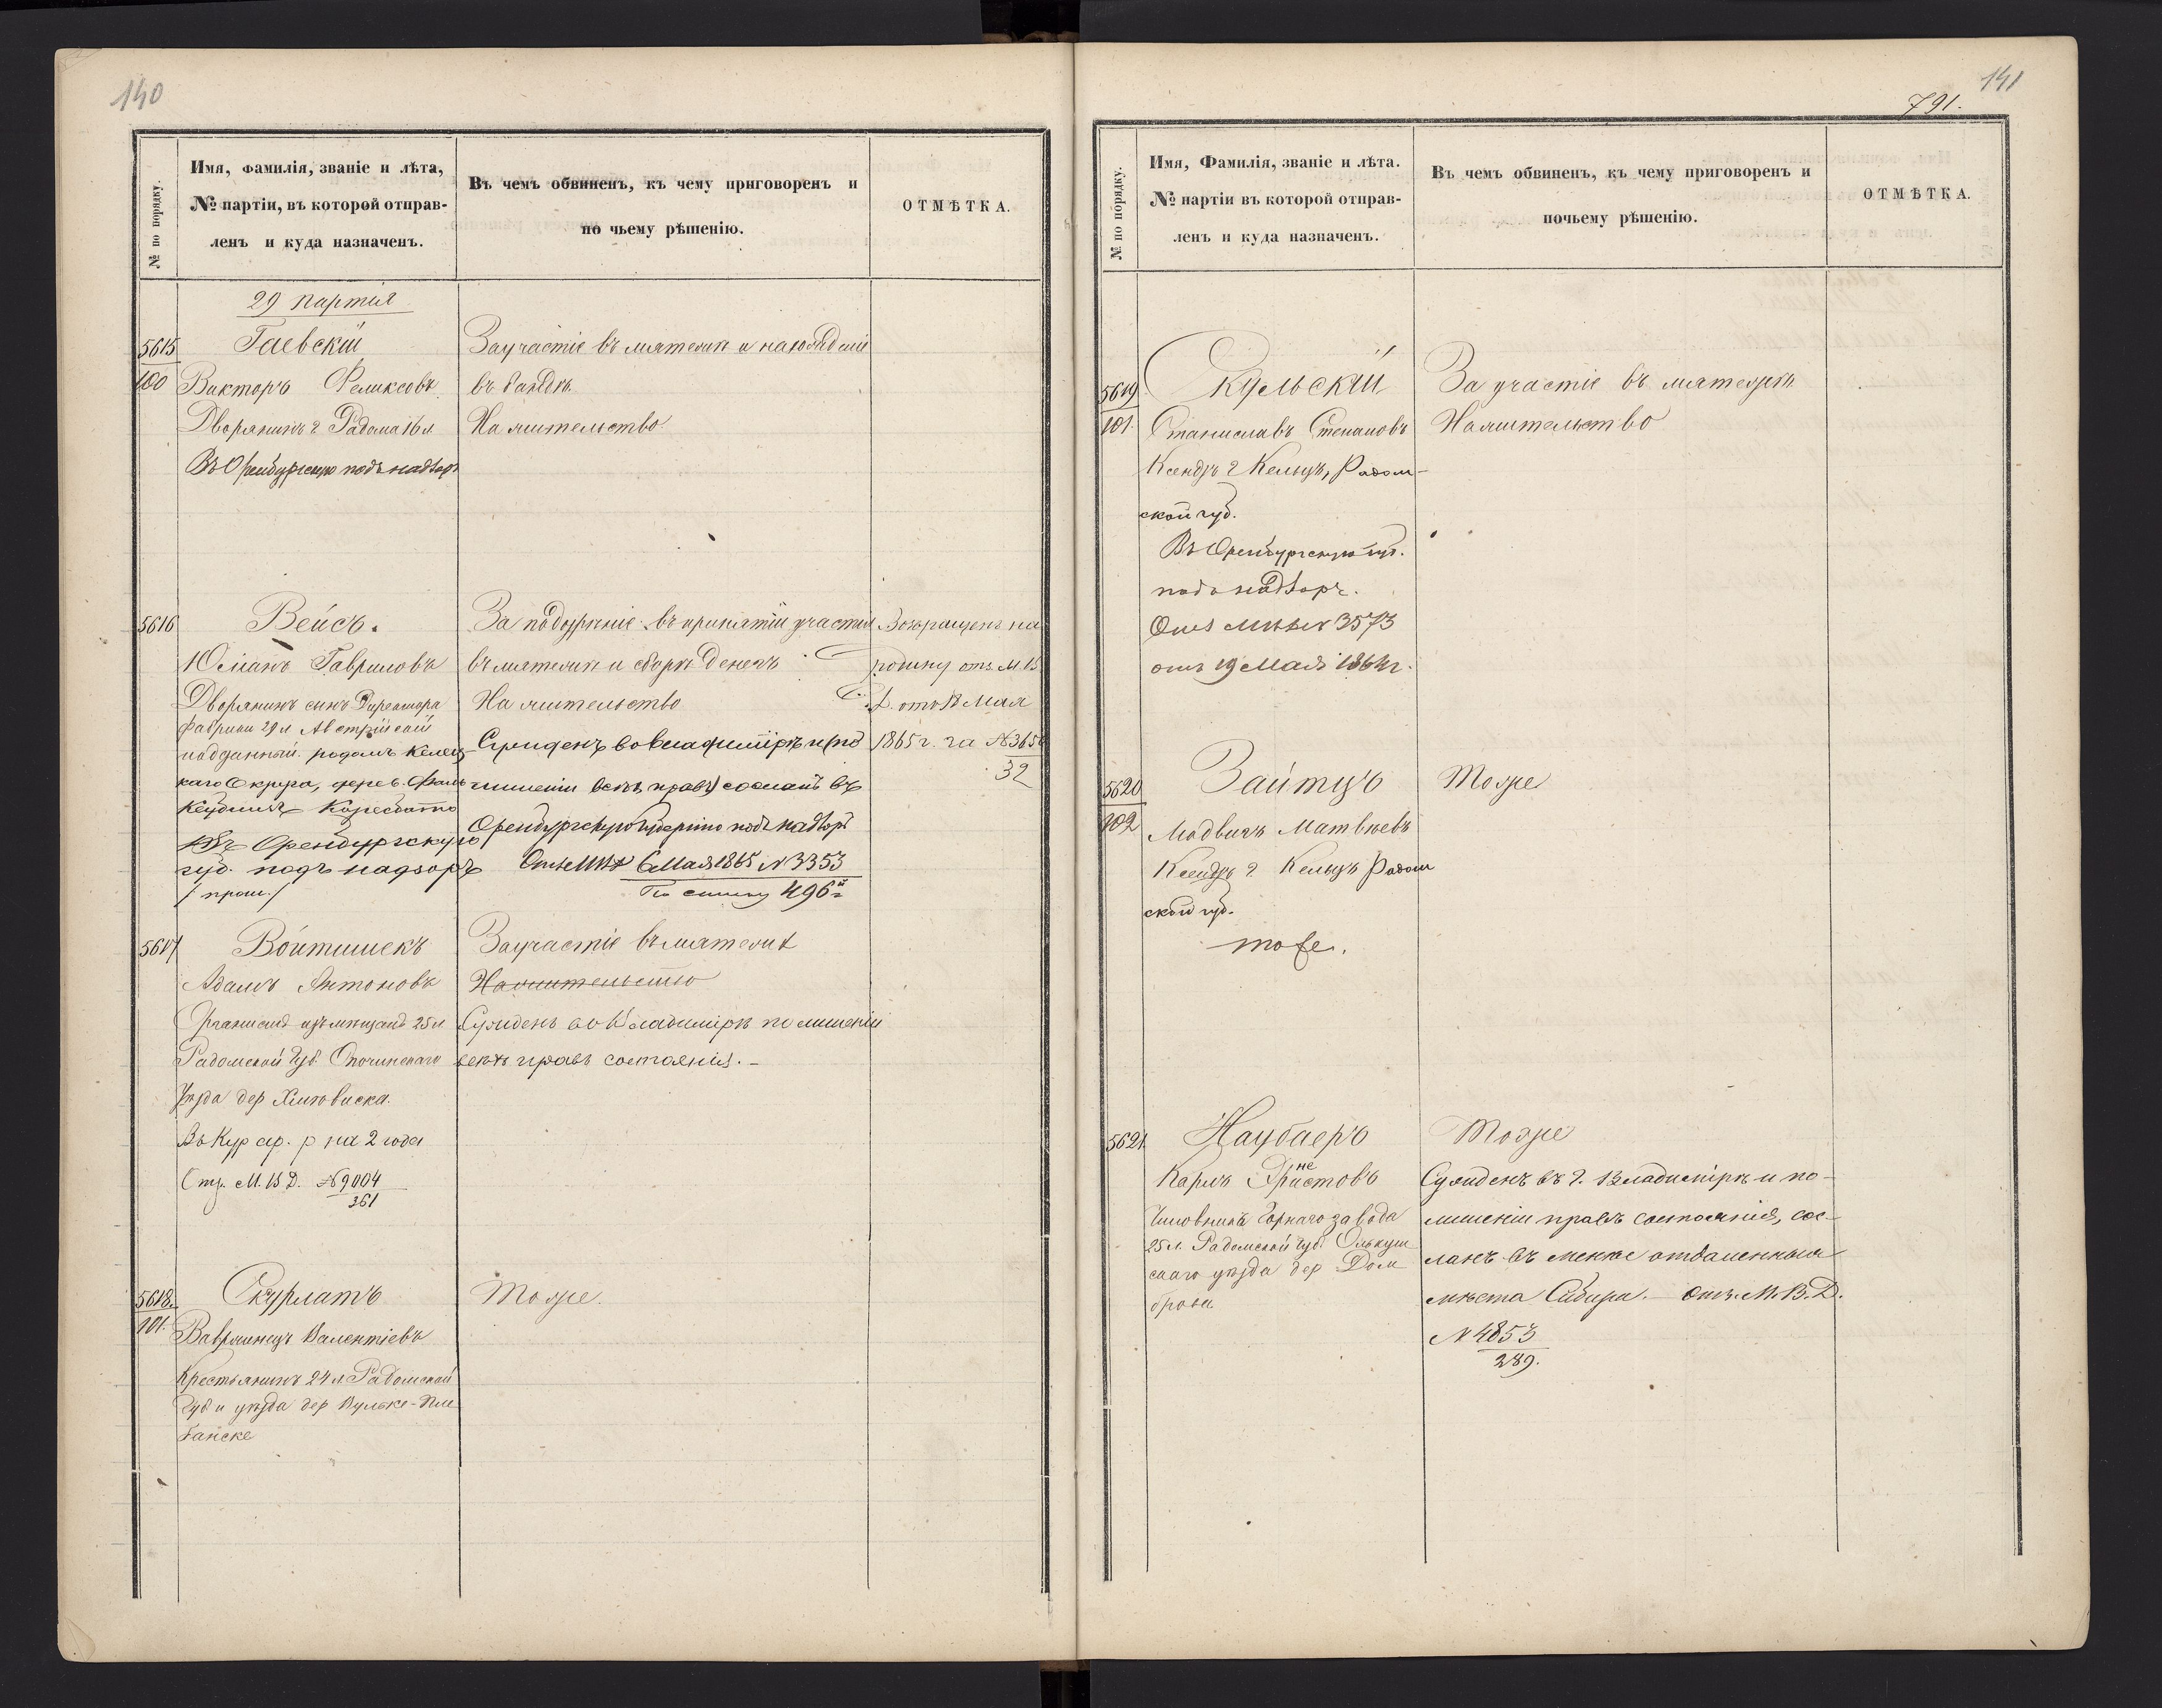 140
№ по порядку.
Имя, фамилія, званіе и лѣта,
№ партіи, въ которой отправ-
ленъ и куда назначенъ.
Въ чемъ обвиненъ, къ чему приговоренъ и
по чьему рѣшенію.
ОТМѢТКА.
29 партія
5615
100
Гаевскій
Викторъ Феликсовъ
Дворянинъ г Радома 16 л
Въ Оренбургскую подъ надзоръ
За участіе въ мятежѣ и нахожденіе
въ бандѣ
На жительство
5616
Вейсъ.
Юліанъ Гавриловъ
Дворянинъ сынъ Директора
фабрики 29 л Австрійскій
подданный. родомъ Келец-
каго Округа, дерев.
Въ Оренбургскую
губ. подъ надзоръ
За подозрѣніе въ принятіи участія
въ мятежѣ и сборѣ денегъ
На жительство
Сужденъ во Владимірѣ и (по
лишеніи всѣхъ правъ) сосланъ въ
Оренбургскую Губернію подъ надзоръ
6 Мая 1865 № 3353
По списку 496й
Возвращенъ на
родину отъ М. В.
Д. отъ 18 Мая
1865 г. за № 365
32
5617
Войтишекъ
Адамъ Антоновъ
Органистъ изъ мѣщанъ 25 л
Радомской Губ Опочинскаго
Уѣзда дер Хлѣвиска.
на 2 года
Отз. М. В Д. № 9004
361
За участіе въ мятежѣ
На жительство
Сужденъ во Владимірѣ по лишеніи
всѣхъ правъ состоянія. -
5618.
101.
Скурлатъ
Вавржинецъ Валентіевъ
Крестьянинъ 24 л Радомской
Губ и уѣзда дер Вулька-Пле
банске
Тоже.
141
791.
№ по порядку.
Имя, Фамилія, званіе и лѣта.
№ партіи въ которой отправ-
ленъ и куда назначенъ.
Въ чемъ обвиненъ, къ чему приговоренъ и
почьему рѣшенію.
ОТМѢТКА.
5619
101
Скульскій
Станиславъ Степановъ
Ксендзъ г Кельцъ, Радом-
ской губ.
Въ Оренбургскую губ.
подъ надзоръ.
3573
отъ 19 Мая 1864 г.
За участіе въ мятежѣ
На жительство
5620
102
Зайтцъ
Людвигъ Матвѣевъ
Ксендзъ г Кельцъ Радом
ской губ.
тоже.
Тоже
5621
Наубаеръ
не
Карлъ Эристовъ
Чиновникъ Горнаго завода
25 л. Радомской Губ. Олькуш
скаго уѣзда дер Дом
брова
Тоже
Сужденъ въ г. Владимірѣ и по-
лишеніи правъ состоянія, сос-
ланъ въ менѣе отдаленныя
мѣста Сибири. - Отз. М. В. Д.
№ 4853
289.